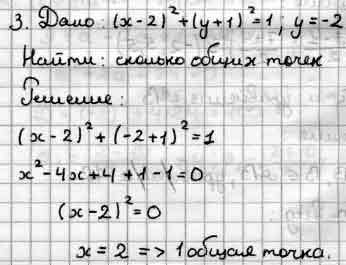 3. Дано: (x-2)²+(y+1)²=1; y=-2
Найти: сколько общих точек
Решение:
(x-2)²+(-2+1)²=1
x²-4x+4+1-1=0
(x-2)²=0
x=2 => 1 общая точка.